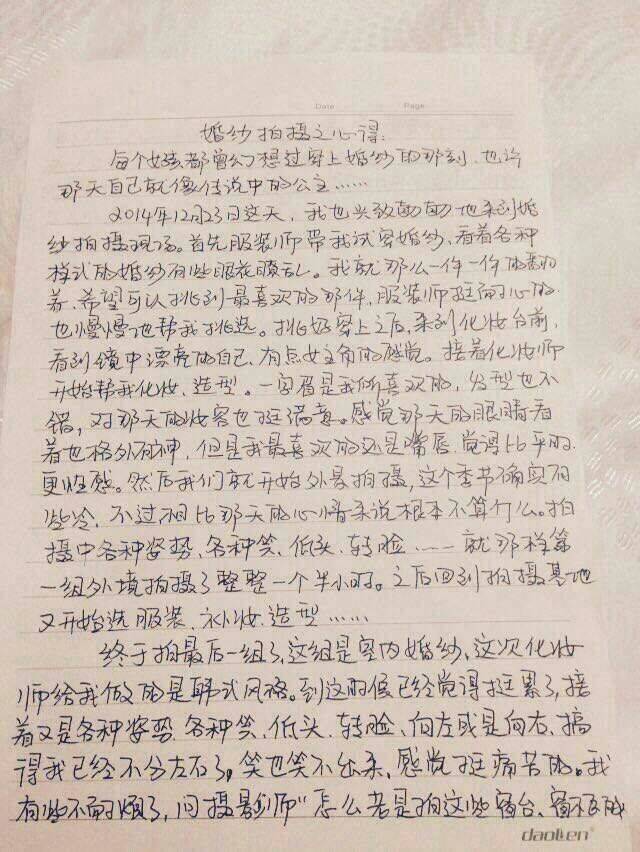 Date Page
婚纱拍摄之心得:
每个女孩都曾幻想过穿上婚纱的那刻,也许
那天自己就像传说中的公主……
2014年12月23日这天,我也兴致勃勃地来到婚
纱拍摄现场。首先服装师带我试穿婚纱,看着各种
样式的婚纱有些眼花瞭乱。我就那么一件一件的翻
弄,希望可以挑到最喜欢的那件,服装师挺耐心的
也慢慢地帮我挑选。挑好穿上之后,来到化妆台前,
看到镜中漂亮的自己,有点女主角的感觉。接着化妆师
开始帮我化妆、造型。一字眉是我所喜欢的,发型也不
错,对那天的妆容也挺满意。感觉那天的眼睛看
着也格外有神,但是我最喜欢的还是嘴唇,觉得比平时
更性感。然后我们就开始外景拍摄,这个季节确实有
些冷,不过相比那天的心情来说根本不算什么。拍
摄中各种姿势、各种笑、低头、转脸……就那样第
一组外境拍摄了整整一个半小时。之后回到拍摄基地
又开始选服装、补妆、造型……
终于拍最后一组了,这组是室内婚纱,这次化妆
师给我做的是韩式风格。到这时候已经觉得挺累了,接
着又是各种姿势、各种笑、低头、转脸、向左或是向右、搞
得我已经不分左右了,笑也笑不出来,感觉挺痛苦的。我
有些不耐烦了,问摄影师“怎么老是拍这些窗台、窗
daolien